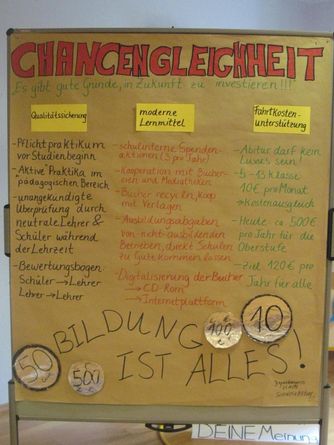 CHANCENGLEICHHEIT
Es gibt gute Gründe, in Zukunft zu investieren!!!
Qualitätssicherung
- Pflichtpraktikum
vor Studienbeginn
- Aktive Praktika im
pädagogischen Bereich
- unangekündigte
Überprüfung durch
neutrale Lehrer &
Schüler während
der Lehrzeit
- Bewertungsbogen:
Schüler → Lehrer
Lehrer → Lehrer
moderne
Lernmittel
- schulinterne Spenden-
aktionen (3 pro Jahr)
- Kooperation mit Bücher-
eien und Mediatheken
- Bücher recyceln, Koop.
mit Verlagen
- Ausbildungsabgaben
von nicht-ausbildenden
Betrieben, direkt Schulen
zu Gute kommen lassen
- Digitalisierung der Bücher
→ CD-Rom
→ Internetplattform
Fahrtkosten-
unterstützung
- Abitur darf kein
Luxus sein!
- 5.-13. Klasse
10€ pro Monat
→ Kostenausgleich
- Heute: ca. 500€
pro Jahr für die
Oberstufe
- Ziel: 120€ pro
Jahr für alle
BILDUNG
IST ALLES!
50
500
100
10
DEINE Meinung